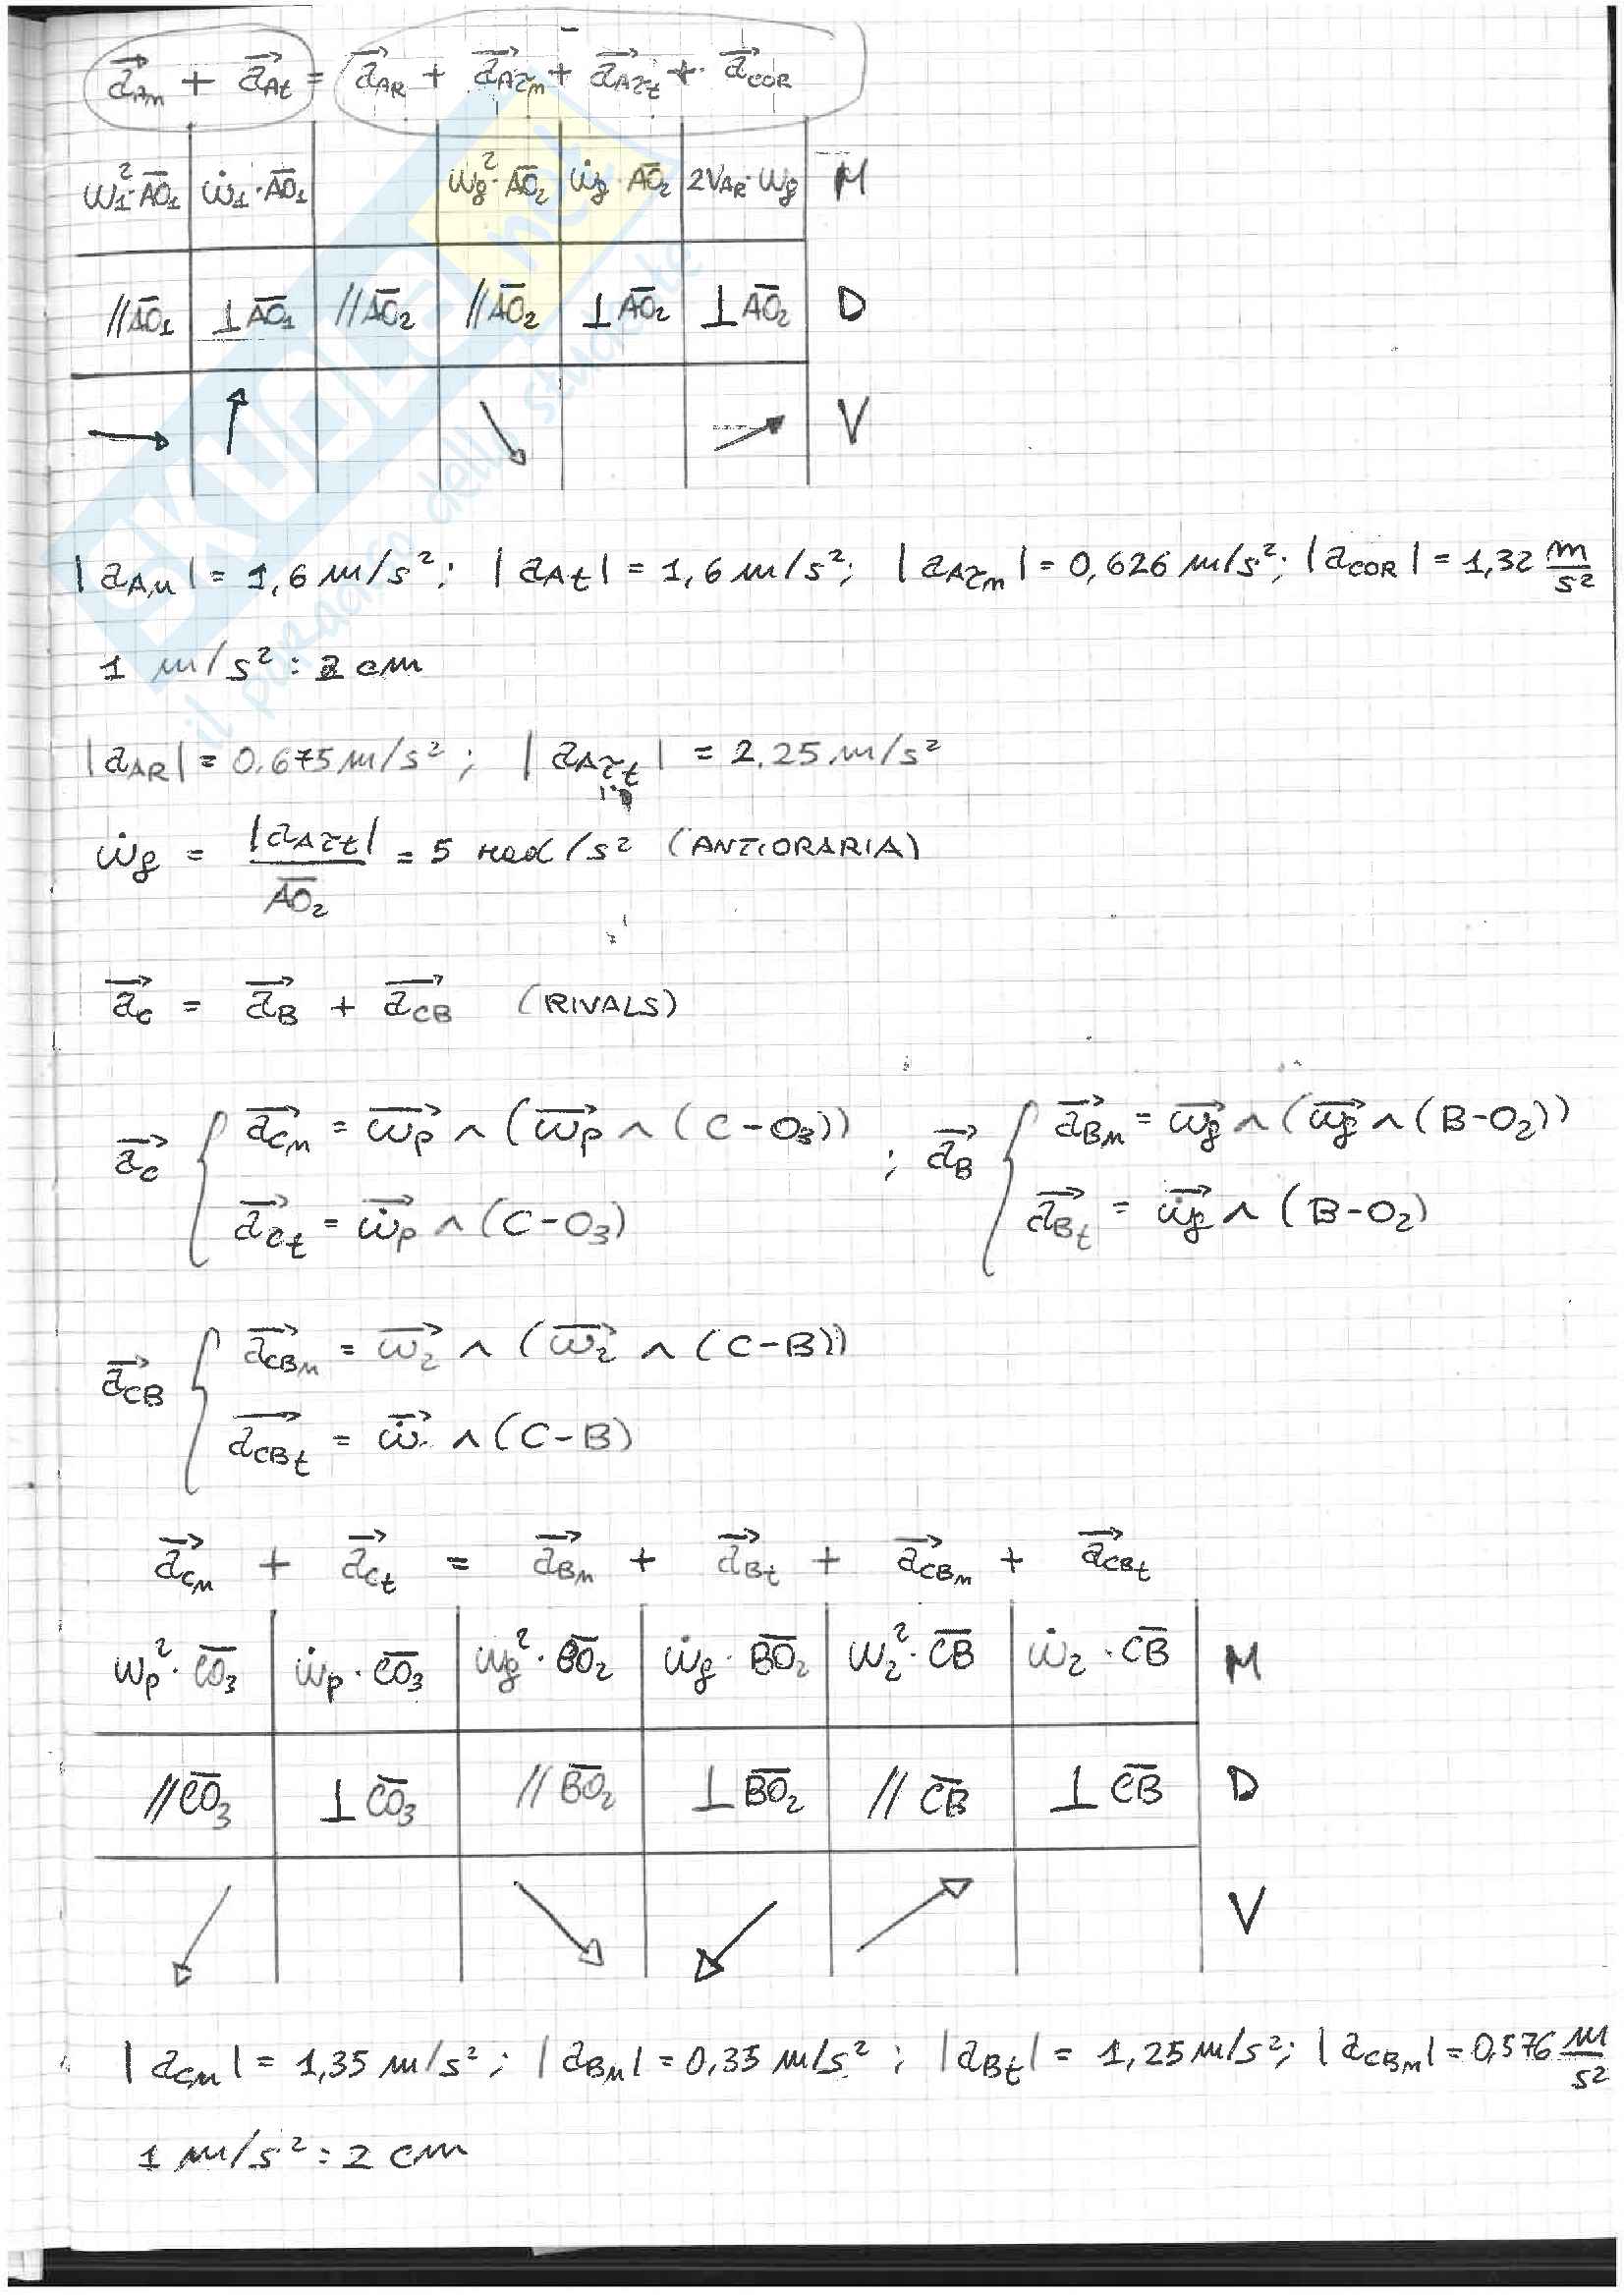 a⃗_An + a⃗_At = a⃗_AR + a⃗_Aτn + a⃗_Aτt + a⃗_COR
ω₁²·A̅O̅₁ | ω̇₁·A̅O̅₁ | | ωg²·A̅O̅₂ | ω̇g·A̅O̅₂ | 2V_AR·ωg | M
//A̅O̅₁ | ⊥A̅O̅₁ | //A̅O̅₂ | //A̅O̅₂ | ⊥A̅O̅₂ | ⊥A̅O̅₂ | D
→ | ↑ | | ↘ | | ↗ | V
|a_An| = 1,6 m/s²; |a_At| = 1,6 m/s²; |a_Aτn| = 0,626 m/s²; |a_COR| = 1,32 m/s²
1 m/s² : 2 cm
|a_AR| = 0.675 m/s²; |a_Aτt| = 2.25 m/s²
ω̇g = |a_Aτt| / A̅O̅₂ = 5 rad/s² (ANTIORARIA)
a⃗_C = a⃗_B + a⃗_CB (RIVALS)
a⃗_C { a⃗_Cn = ω⃗p ∧ (ω⃗p ∧ (C-O₃)) ; a⃗_B { a⃗_Bn = ω⃗g ∧ (ω⃗g ∧ (B-O₂))
a⃗_Ct = ω̇⃗p ∧ (C-O₃) a⃗_Bt = ω̇⃗g ∧ (B-O₂)
a⃗_CB { a⃗_CBn = ω⃗₂ ∧ (ω⃗₂ ∧ (C-B))
a⃗_CBt = ω̇⃗ ∧ (C-B)
a⃗_Cn + a⃗_Ct = a⃗_Bn + a⃗_Bt + a⃗_CBn + a⃗_CBt
ωp²·C̅O̅₃ | ω̇p·C̅O̅₃ | ωg²·B̅O̅₂ | ω̇g·B̅O̅₂ | ω₂²·C̅B̅ | ω̇₂·C̅B̅ | M
//C̅O̅₃ | ⊥C̅O̅₃ | //B̅O̅₂ | ⊥B̅O̅₂ | //C̅B̅ | ⊥C̅B̅ | D
↙ | | ↘ | ↙ | ↗ | | V
|a_Cn| = 1,35 m/s²; |a_Bn| = 0,35 m/s²; |a_Bt| = 1,25 m/s²; |a_CBn| = 0,576 m/s²
1 m/s² : 2 cm
SKUOLA.net
il paradiso dello studente